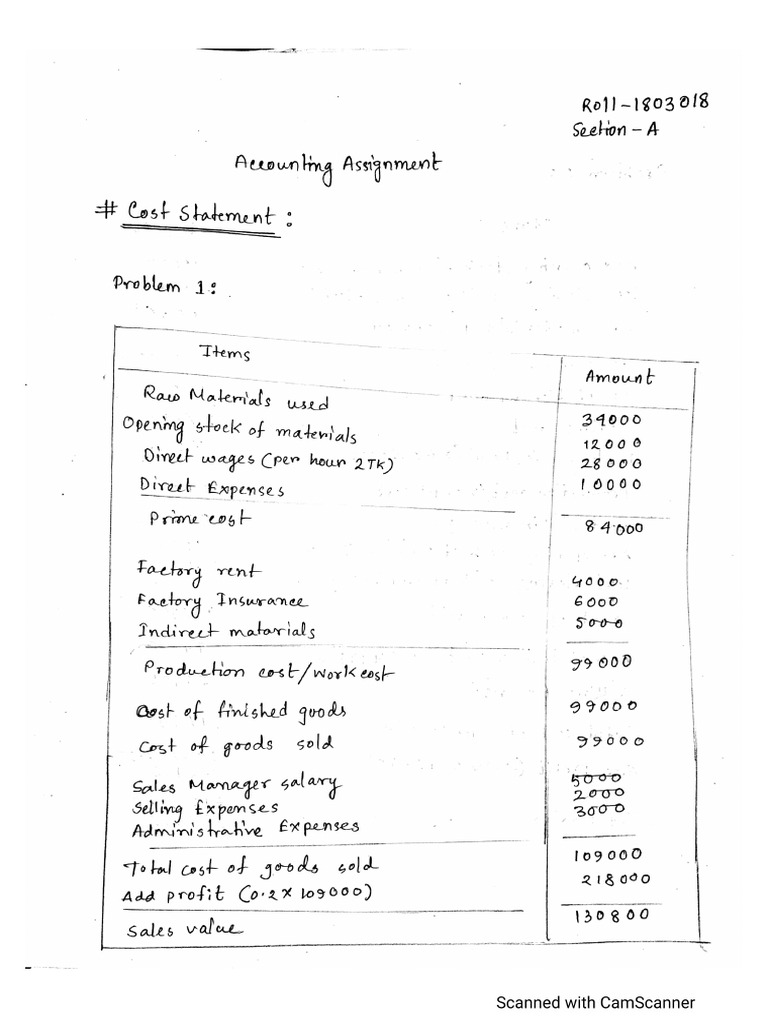 Roll-1803018
Section-A
Accounting Assignment
# Cost Statement :
Problem 1:
Items Amount
Raw Materials used 34000
Opening stock of materials 12000
Direct wages (per hour 2TK) 28000
Direct Expenses 10000
Prime cost 84000
Factory rent 4000
Factory Insurance 6000
Indirect matarials 5000
Production cost/work cost 99000
Cost of finished goods 99000
Cost of goods sold 99000
Sales Manager salary 5000
Selling Expenses 2000
Administrative Expenses 3000
Total cost of goods sold 109000
Add profit (0.2x109000) 218000
Sales value 130800
Scanned with CamScanner